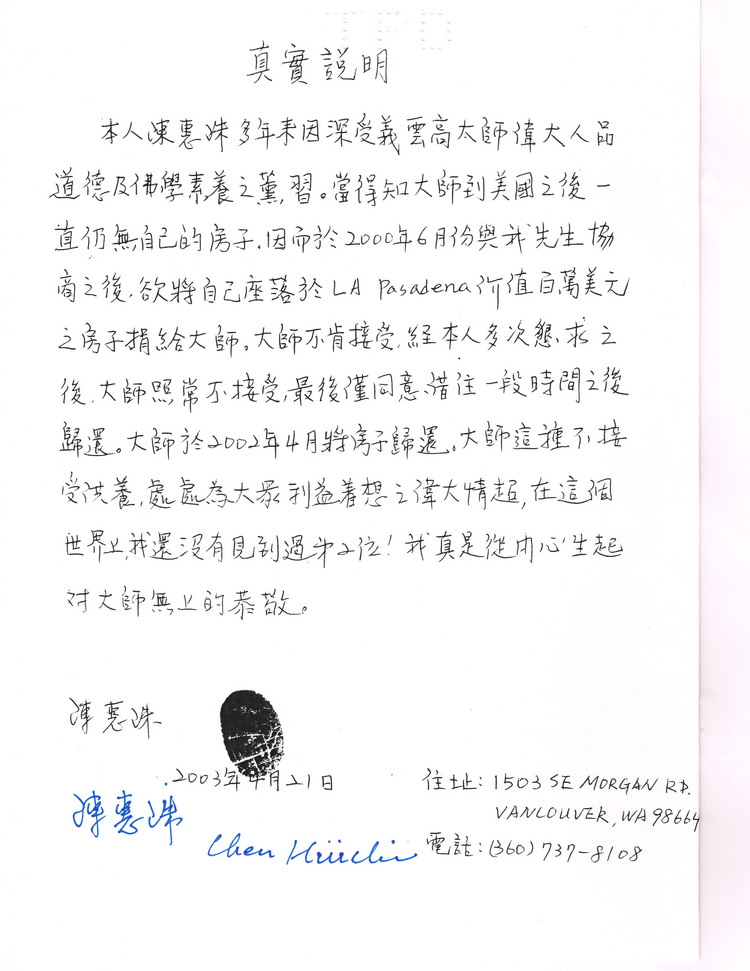 真實說明
本人陳惠姝多年來因深受義雲高大師偉大人品
道德及佛學素養之薰習。當得知大師到美國之後一
直仍無自己的房子,因而於2000年6月份與我先生協
商之後,欲將自己座落於LA Pasadena价值百萬美元
之房子捐給大師。大師不肯接受,經本人多次懇求之
後,大師照常不接受,最後僅同意借住一段時間之後
歸還。大師於2002年4月將房子歸還。大師這種不接
受洪養,處處為大眾利益着想之偉大情超,在這個
世界上,我還没有見到過第2位!我真是從內心生起
对大師無上的恭敬。
陳惠姝
2003年4月21日
住址:1503 SE MORGAN RD.
VANCOUVER, WA 98664
電話:(360)737-8108
陳惠姝
Chen